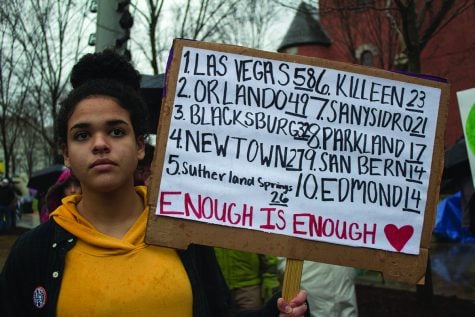 1. LAS VEGAS 58 6. KILLEEN 23
2. ORLANDO 49 7. SANYSIDRO 21
3. BLACKSBURG 32 8. PARKLAND 17
4. NEWTOWN 27 9. SAN BERN 14
5. Sutherland Springs 10. EDMOND 14
26
ENOUGH IS ENOUGH